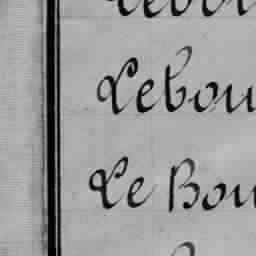 Lebou
Le Bou